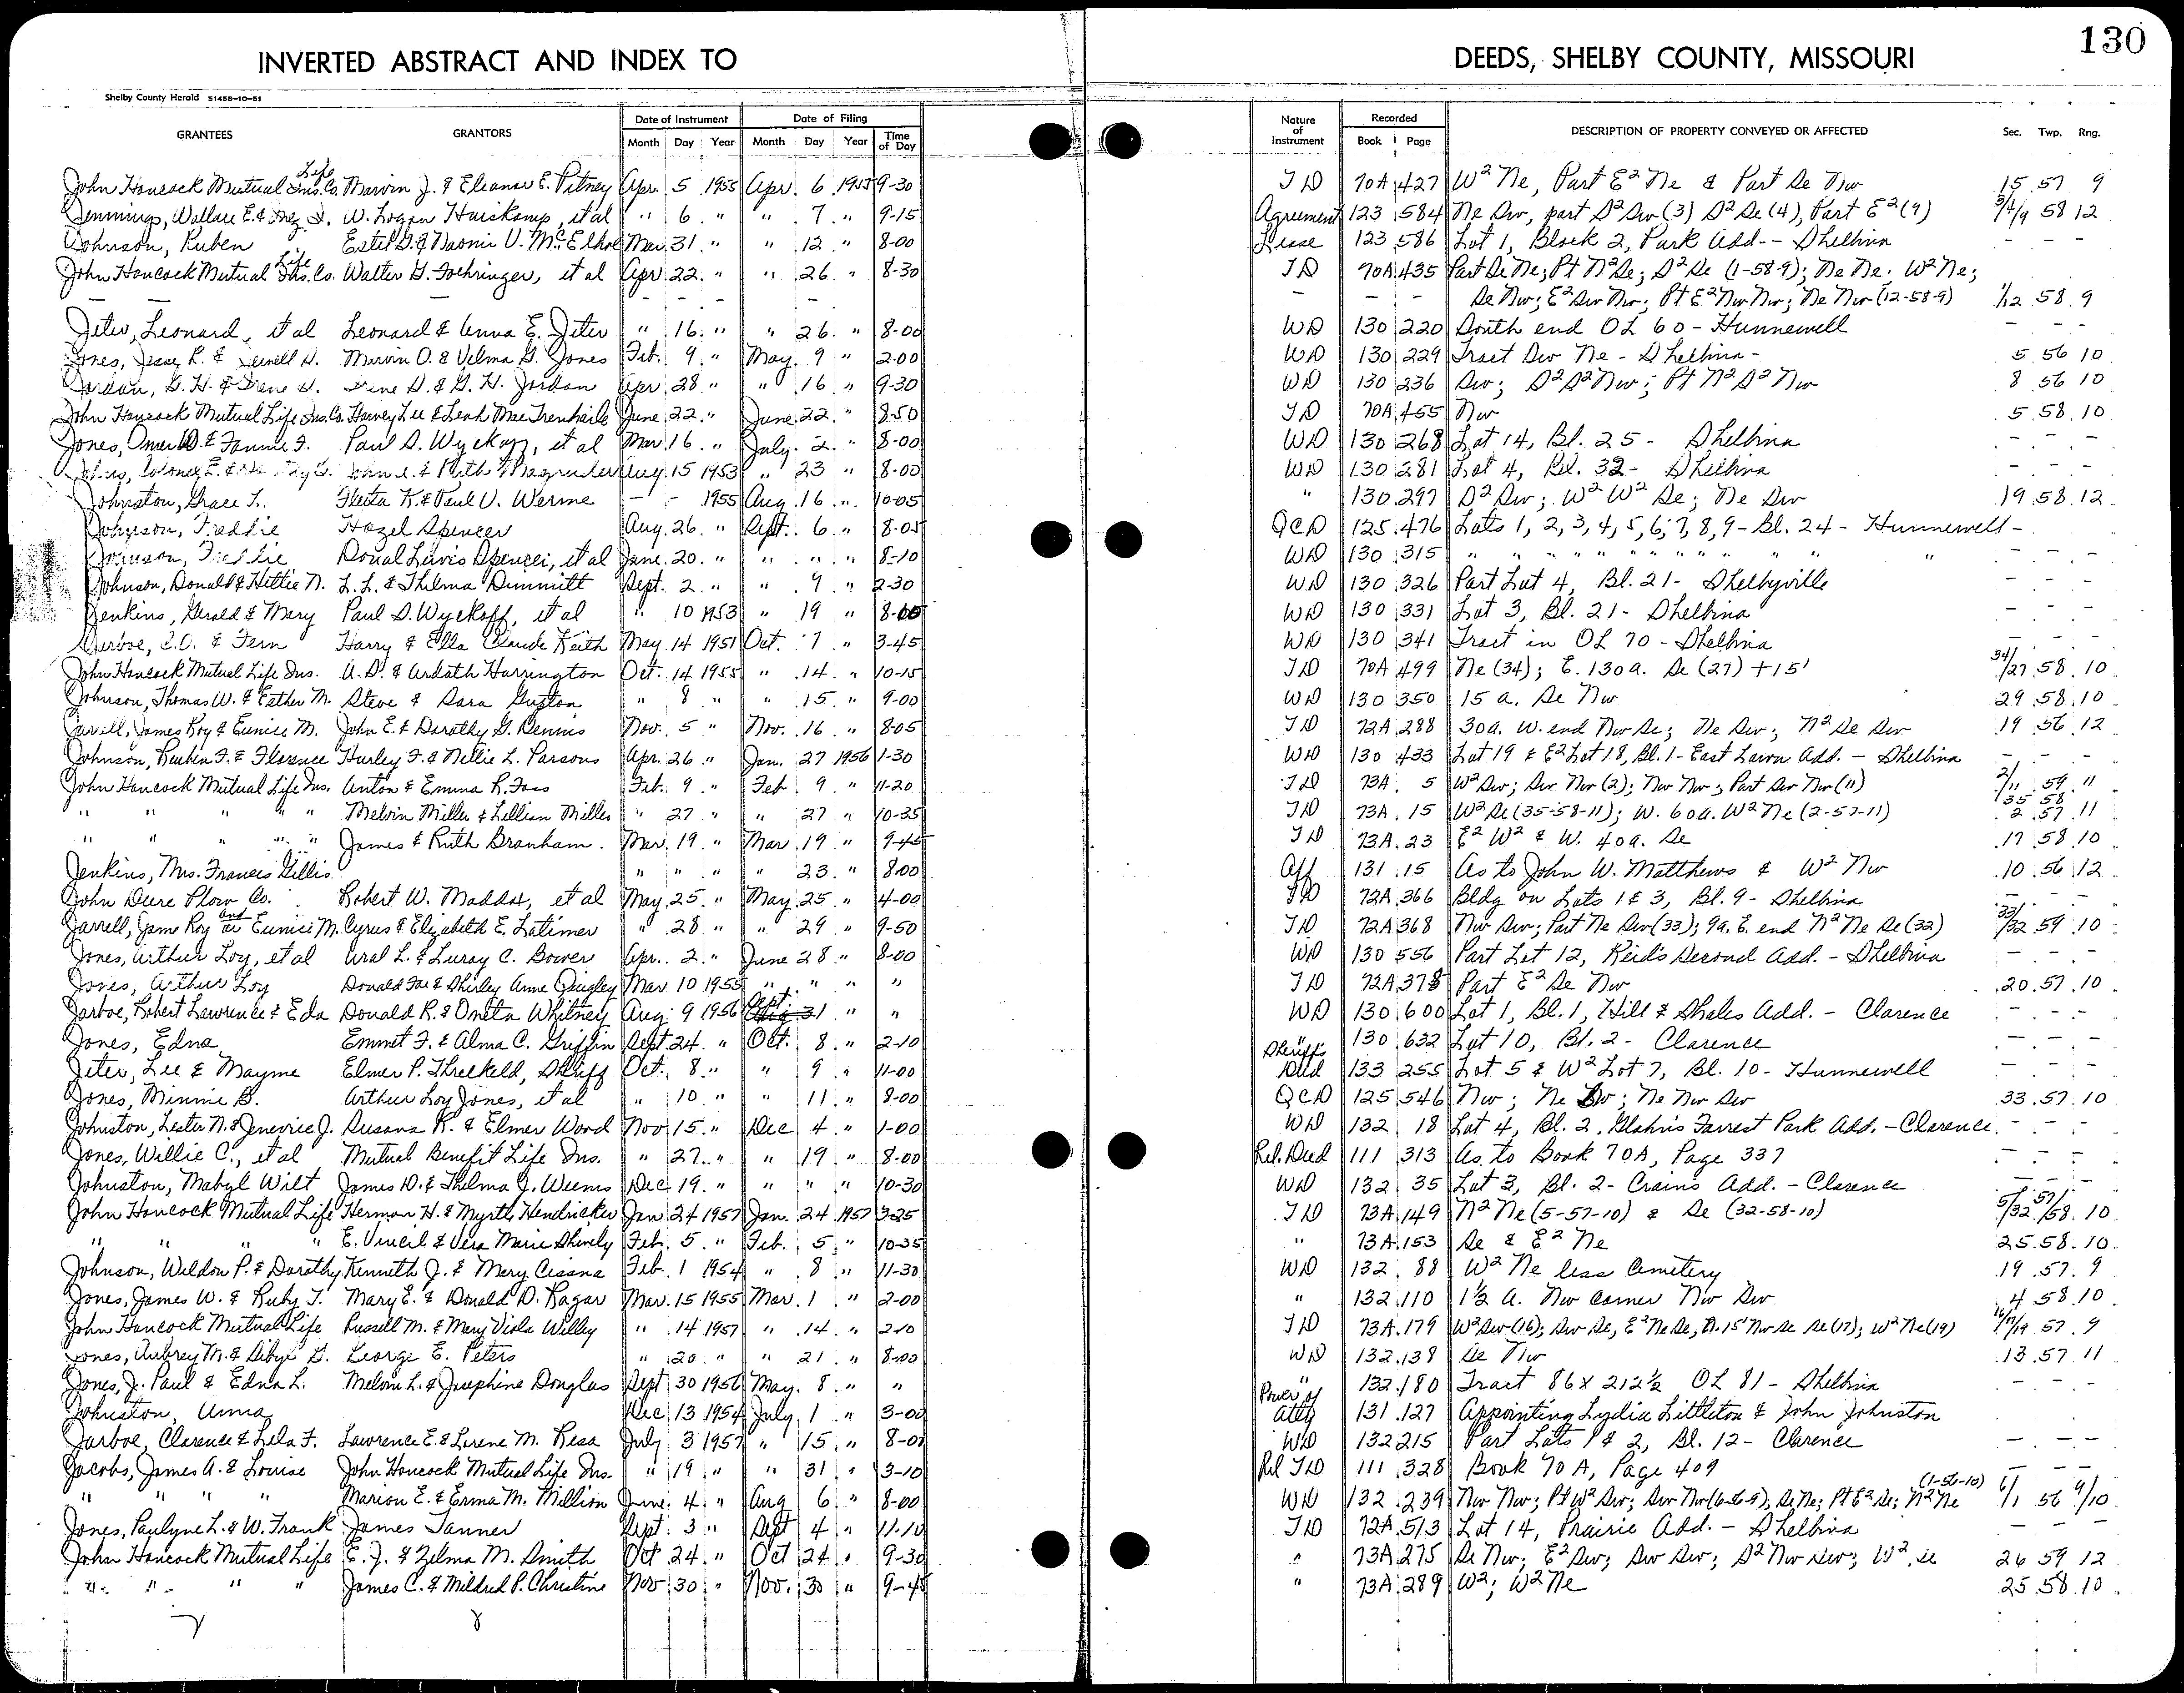 130
INVERTED ABSTRACT AND INDEX TO DEEDS, SHELBY COUNTY, MISSOURI
Shelby County Herald 51458-10-51
GRANTEES GRANTORS Date of Instrument Month Day Year Date of Filing Month Day Year Time of Day Nature of Instrument Recorded Book Page DESCRIPTION OF PROPERTY CONVEYED OR AFFECTED Sec. Twp. Rng.
John Hancock Mutual Life Ins. Co. Marvin J. & Eleanor E. Pitney Apr. 5 1955 Apr. 6 1955 9-30 TD 70A 427 W² Ne, Part E² Ne & Part Se Nw 15 57 9
Jennings, Wallace E. & Inez I. W. Logan Huiskamp, et al " 6 " " 7 " 9-15 Agreement 123 584 Ne Sw, part S² Sw (3) S² Se (4), Part E² (9) 3/4/9 58 12
Johnson, Ruben Estil G. & Naomi V. McElroy Mar. 31 " " 12 " 8-00 Lease 123 586 Lot 1, Block 2, Park Add. - Shelbina - -
John Hancock Mutual Life Ins. Co. Walter G. Foehringer, et al Apr. 22 " " 26 " 8-30 TD 70A 435 Part Se Ne; Pt N² Se; S² Se (1-58-9); Ne Ne; W² Ne;
- - - - - - - Se Nw; E² Sw Nw; Pt E² Nw Nw; Ne Nw (12-58-9) 1/12 58 9
Jeter, Leonard, et al Leonard & Anna E. Jeter " 16 " " 26 " 8-00 WD 130 220 South end OL 60 - Hunnewell - - -
Jones, Jesse R. & Jewell S. Marvin O. & Velma G. Jones Feb. 9 " May 9 " 2-00 WD 130 229 Tract Sw Ne - Shelbina - 5 56 10
Jordan, G. H. & Irene D. Irene D. & G. H. Jordan Apr. 28 " " 16 " 9-30 WD 130 236 Sw; S² S² Nw; Pt N² S² Nw 8 56 10
John Hancock Mutual Life Ins. Co. Harvey Lee & Leah Mae Trenhaile June 22 " June 22 " 8-50 TD 70A 465 Nw 5 58 10
Jones, Omer D. & Fannie F. Paul D. Wyckoff, et al Mar. 16 " July 2 " 8-00 WD 130 268 Lot 14, Bl. 25 - Shelbina - - -
Magruder Aug. 15 1953 " 23 " 8-00 WD 130 281 Lot 4, Bl. 32 - Shelbina - - -
Johnston, Grace L. Fleeta K. & Paul V. Werme - - 1955 Aug. 16 " 10-05 " 130 297 S² Sw; W² W² Se; Ne Sw 19 58 12
Johnson, Freddie Hazel Spencer Aug. 26 " Sept. 6 " 8-05 QCD 125 476 Lots 1, 2, 3, 4, 5, 6, 7, 8, 9 - Bl. 24 - Hunnewell -
Johnson, Freddie Donal Lewis Spencer, et al June 20 " " " " 8-10 WD 130 315 " " " " " " " " " " " " " - - -
Johnson, Donald & Hettie N. L. L. & Thelma Dimmitt Sept. 2 " " 9 " 2-30 WD 130 326 Part Lot 4, Bl. 21 - Shelbyville - - -
Jenkins, Gerald & Mary Paul D. Wyckoff, et al " 10 1953 " 19 " 8-00 WD 130 331 Lot 3, Bl. 21 - Shelbina - - -
Jarboe, & Fern Harry & Ella Claude Keith May 14 1951 Oct. 7 " 3-45 WD 130 341 Tract in OL 70 - Shelbina - - -
John Hancock Mutual Life Ins. A. D. & Ardath Harrington Oct. 14 1955 " 14 " 10-15 TD 70A 499 Ne (34); E. 130a. Se (27) + 15' 34/27 58 10
Johnson, Thomas W. & Esther M. Steve & Sara Guston " 8 " " 15 " 9-00 WD 130 350 15 a. Se Nw 29 58 10
Jarrell, James Roy & Eunice M. John E. & Dorothy G. Dennis Nov. 5 " Nov. 16 " 8-05 TD 72A 288 30a. W. end Nw Se; Ne Sw; N² Se Sw 19 56 12
Johnson, Reuben F. & Florence Hurley F. & Nellie L. Parsons Apr. 26 " Jan. 27 1956 1-30 WD 130 433 Lot 19 & E² Lot 18, Bl. 1 - East Lawn Add. - Shelbina - - -
John Hancock Mutual Life Ins. Anton & Emma R. Foss Feb. 9 " Feb. 9 " 11-20 TD 73A 5 W² Sw; Sw Nw (2); Nw Nw; Part Sw Nw (11) 2/11 59 11
" " " " " Melvin Miller & Lillian Miller " 27 " " 27 " 10-35 TD 73A 15 W² Se (35-58-11); W. 60a. W² Ne (2-57-11) 35 58 2 57 11
" " " " " James & Ruth Branham Mar. 19 " Mar. 19 " 9-45 TD 73A 23 E² W² & W. 40a. Se 17 58 10
Jenkins, Mrs. Francis Gillis " " " " 23 " 8-00 Aff 131 15 As to John W. Matthews & W² Nw 10 56 12
John Deere Plow Co. Robert W. Maddox, et al May 25 " May 25 " 4-00 TD 72A 366 Bldg on Lots 1 & 3, Bl. 9 - Shelbina - - -
Jarrell, Jame Roy and Eunice M. Cyrus & Elizabeth E. Latimer " 28 " " 29 " 9-50 TD 72A 368 Nw Sw; Part Ne Sw (33); 9a. E. end N² Ne Se (32) 33/32 59 10
Jones, Arthur Loy, et al Ural L. & Luray C. Bower Apr. 2 " June 28 " 8-00 WD 130 556 Part Lot 12, Reid's Second Add. - Shelbina - - -
Jones, Arthur Loy Donald Joe & Shirley Anne Quigley Mar 10 1955 " " " " TD 72A 378 Part E² Se Nw 20 57 10
Jarboe, Robert Lawrence & Eda Donald R. & Oneta Whitney Aug. 9 1956 Sept. 31 " " WD 130 600 Lot 1, Bl. 1, Hill & Shales Add. - Clarence - - -
Jones, Edna Emmet F. & Alma C. Griffin Sept. 24 " Oct. 8 " 2-10 " 130 632 Lot 10, Bl. 2 - Clarence - - -
Jeter, Lee & Mayme Elmer P. Threlkeld, Sheriff Oct. 8 " " 9 " 11-00 Sheriff's Deed 133 255 Lot 5 & W² Lot 7, Bl. 10 - Hunnewell - - -
Jones, Minnie B. Arthur Loy Jones, et al " 10 " " 11 " 8-00 QCD 125 546 Nw; Ne Sw; Ne Nw Sw 33 57 10
Johnston, Lester N. & Jenevice J. Susana K. & Elmer Wood Nov 15 " Dec 4 " 1-00 WD 132 18 Lot 4, Bl. 2, Forrest Park Add. - Clarence - - -
Jones, Willie C., et al Mutual Benefit Life Ins. " 27 " " 19 " 8-00 Rel. Deed 111 313 As to Book 70A, Page 337 - - -
Johnston, Mabyl Wilt James D. & Thelma J. Weems Dec 19 " " " " 10-30 WD 132 35 Lot 3, Bl. 2 - Crain's Add. - Clarence - - -
John Hancock Mutual Life Herman H. & Myrtle Hendricks Jan 24 1957 Jan. 24 1957 3-25 TD 73A 149 N² Ne (5-57-10) & Se (32-58-10) 5/32 57/58 10
" " " " E. Vincil & Vera Marie Shively Feb. 5 " Feb. 5 " 10-35 " 73A 153 Se & E² Ne 25 58 10
Johnson, Weldon P. & Dorothy Kenneth J. & Mary Cissna Feb. 1 1954 " 8 " 11-30 WD 132 88 W² Ne less Cemetery 19 57 9
Jones, James W. & Ruby T. Mary E. & Donald D. Ragar Mar. 15 1955 Mar. 1 " 2-00 " 132 110 1½ a. Nw corner Nw Sw 4 58 10
John Hancock Mutual Life Russell M. & Mary Viola Willey " 14 1957 " 14 " 2-10 TD 73A 179 W² Sw (16); Sw Se, E² Ne Se, 15' Nw Se Se (17); W² Ne (19) 16/17/19 57 9
Jones, Aubrey M. & Sibyl G. George E. Peters " 20 " " 21 " 8-00 WD 132 138 Se Nw 13 57 11
Jones, J. Paul & Edna L. Melvin L. & Josephine Douglas Sept 30 1956 May 8 " " " 132 180 Tract 86 x 212½ OL 81 - Shelbina - - -
Johnston, Anna Dec 13 1954 July 1 " 3-00 Power of Atty 131 127 Appointing Lydia Littleton & John Johnston
Jarboe, Clarence & Lela F. Lawrence E. & Lorene M. Resa July 3 1957 " 15 " 8-01 WD 132 215 Part Lots 1 & 2, Bl. 12 - Clarence - - -
Jacobs, James A. & Louise John Hancock Mutual Life Ins. " 19 " " 31 " 3-10 Rel TD 111 328 Book 70 A, Page 409 - - -
" " " " Marion E. & Erma M. Million June 4 " Aug 6 " 8-00 WD 132 239 Nw Nw; Pt W² Sw; Sw Nw (6-56-9); Se Ne; Pt E² Se; N² Ne (1-56-10) 6/1 56 9/10
Jones, Paulyne L. & W. Frank James Tanner Sept 3 " Sept 4 " 11-10 TD 72A 513 Lot 14, Prairie Add. - Shelbina - - -
John Hancock Mutual Life E. J. & Zelma M. Smith Oct 24 " Oct 24 " 9-30 " 73A 275 Se Nw; E² Sw; Sw Sw; S² Nw Sw; W² Se 26 59 12
" " " " James C. & Mildred P. Christine Nov 30 " Nov. 30 " 9-45 " 73A 289 W²; W² Ne 25 58 10